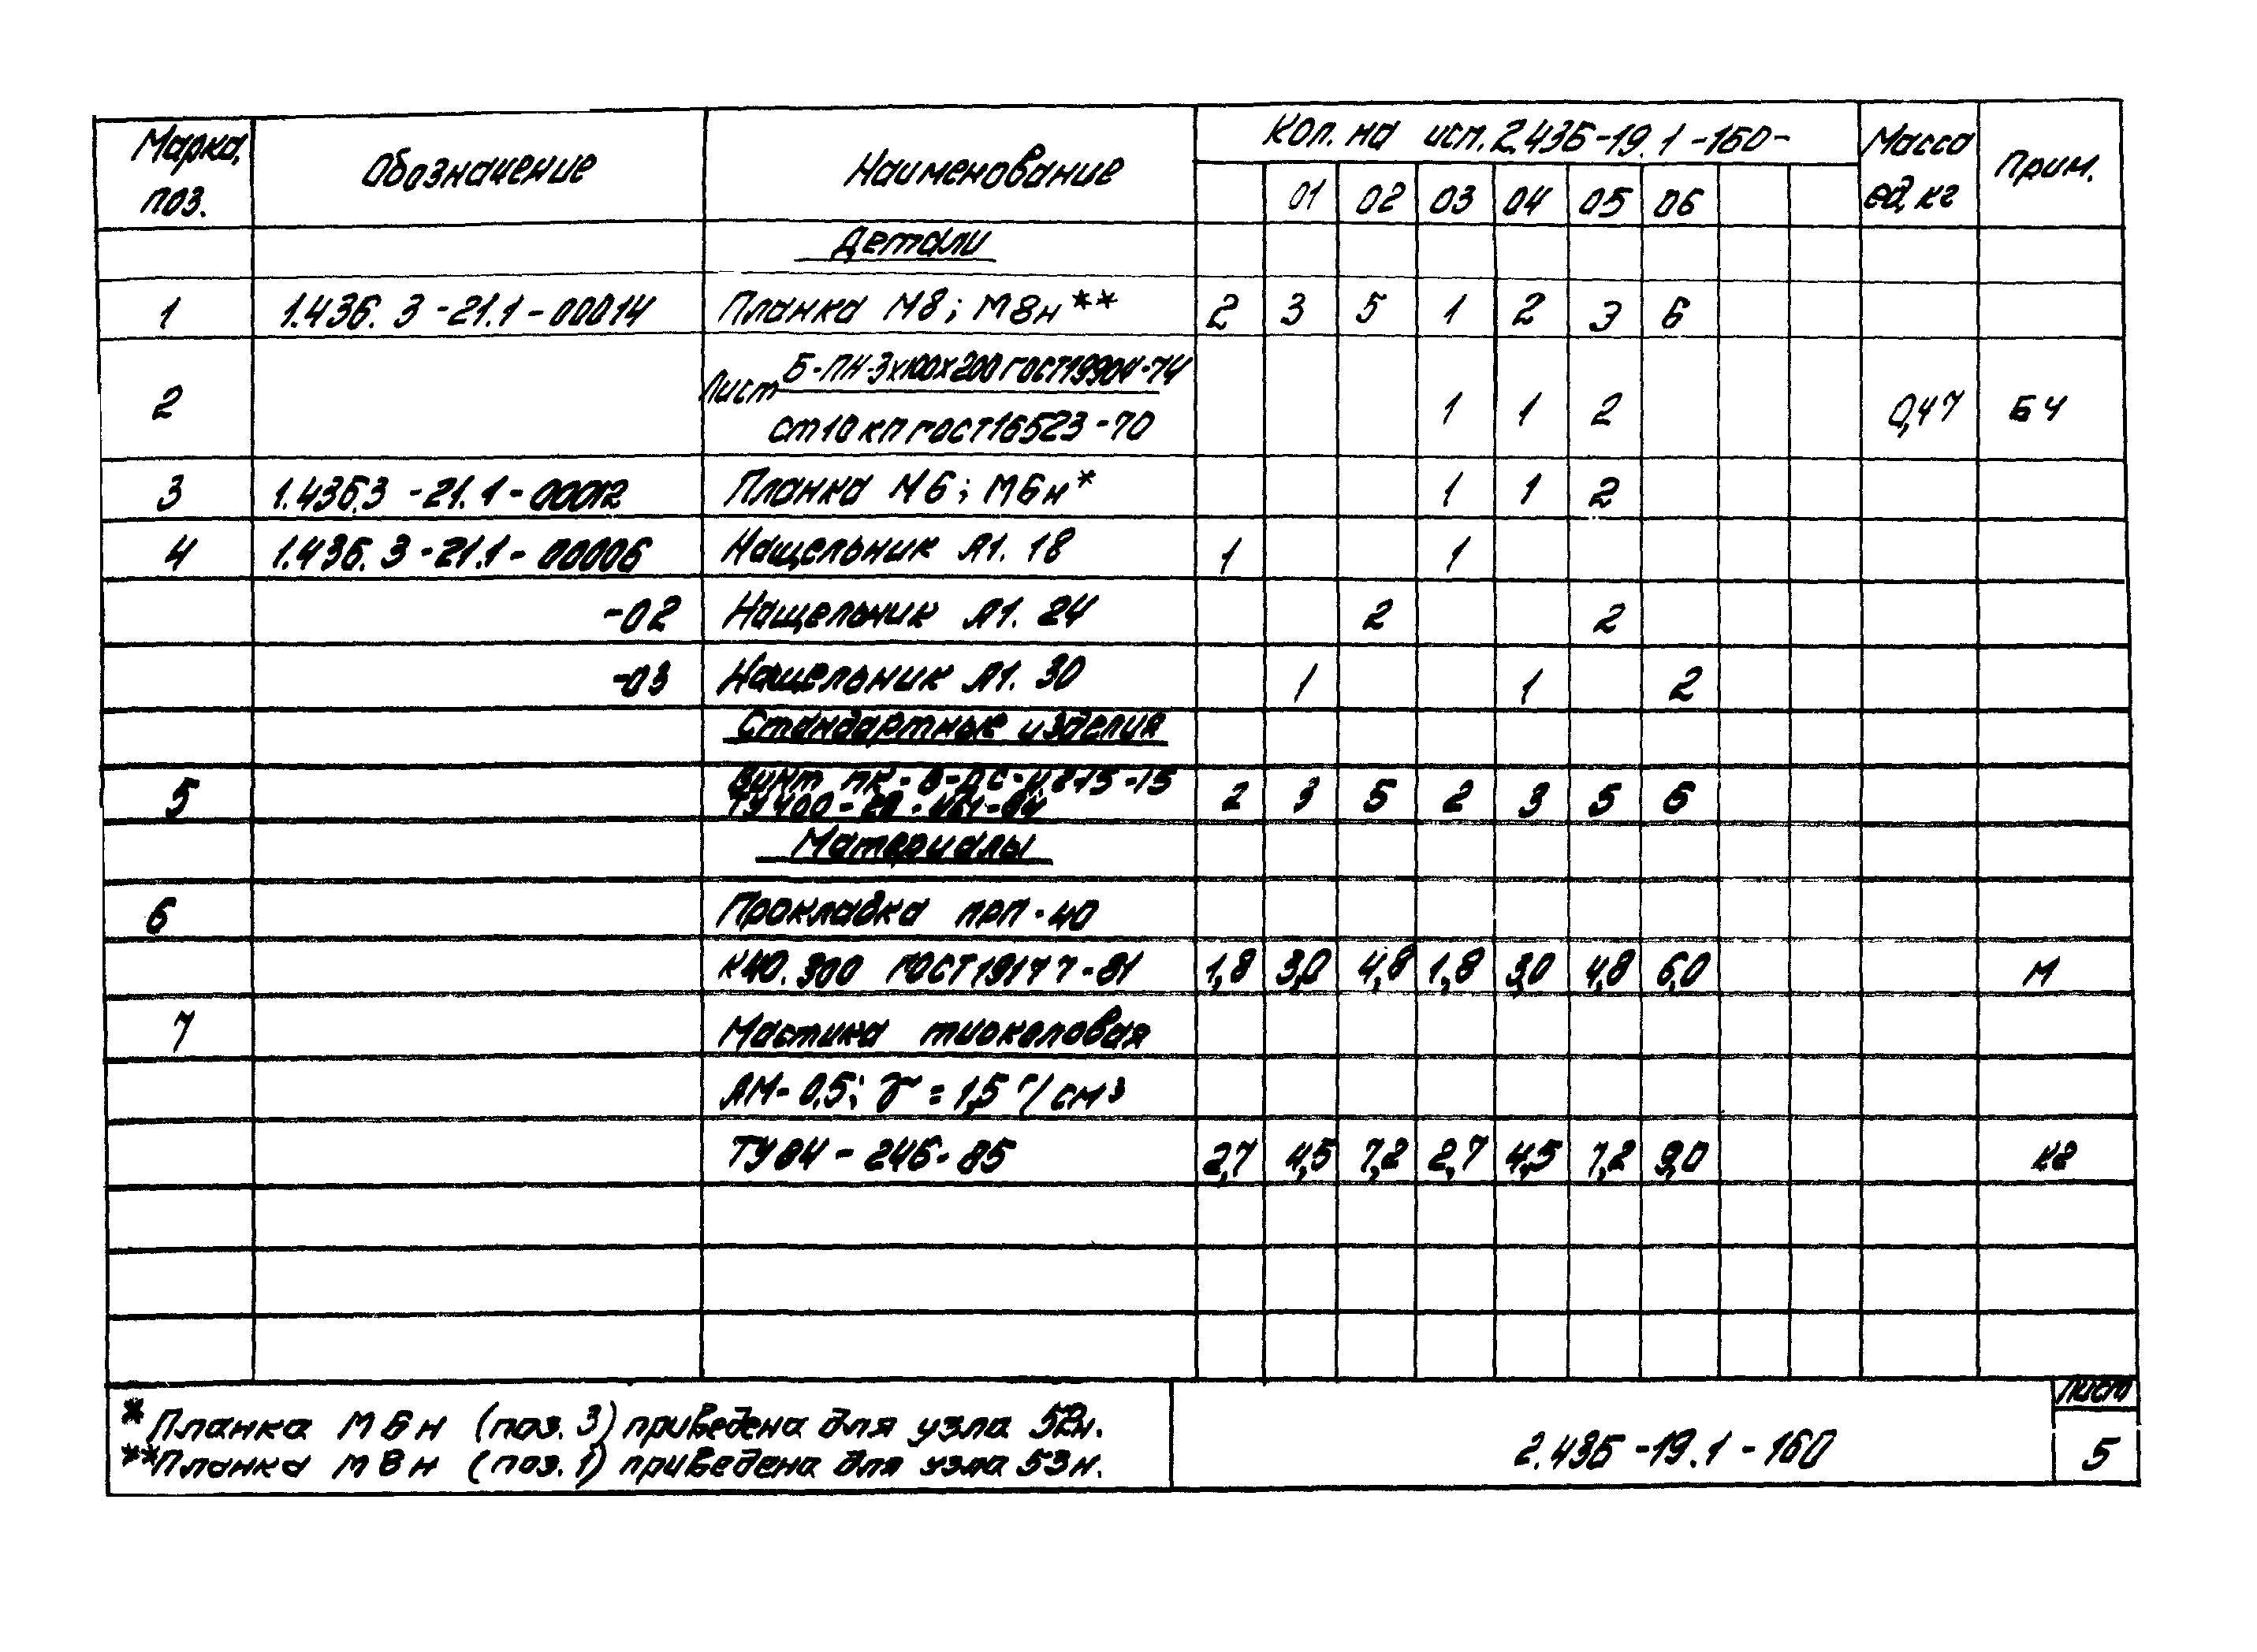 Марка, поз. Обозначение Наименование Кол. на исп. 2.436-19.1-160- Масса ед, кг Прим.
01 02 03 04 05 06
Детали
1 1.436.3-21.1-00014 Планка М8; М8н** 2 3 5 1 2 3 6
2 Лист Б-ПН-3х100х200 ГОСТ19904-74
ст10кп ГОСТ16523-70 1 1 2 0,47 БЧ
3 1.436.3-21.1-00012 Планка М6; М6н* 1 1 2
4 1.436.3-21.1-00006 Нащельник Л1.18 1 1
-02 Нащельник Л1.24 2 2
-03 Нащельник Л1.30 1 1 2
Стандартные изделия
5 Винт 2 3 5 2 3 5 6
Материалы
6 Прокладка прп-40
К40.300 ГОСТ19177-81 1,8 3,0 4,8 1,8 3,0 4,8 6,0 м
7 Мастика тиоколовая
АМ-0,5; γ = 1,5 г/см³
ТУ84-246-85 2,7 4,5 7,2 2,7 4,5 7,2 9,0 кг
* Планка М6н (поз. 3) приведена для узла 52н.
** Планка М8н (поз. 1) приведена для узла 53н.
2.436-19.1-160
Лист
5